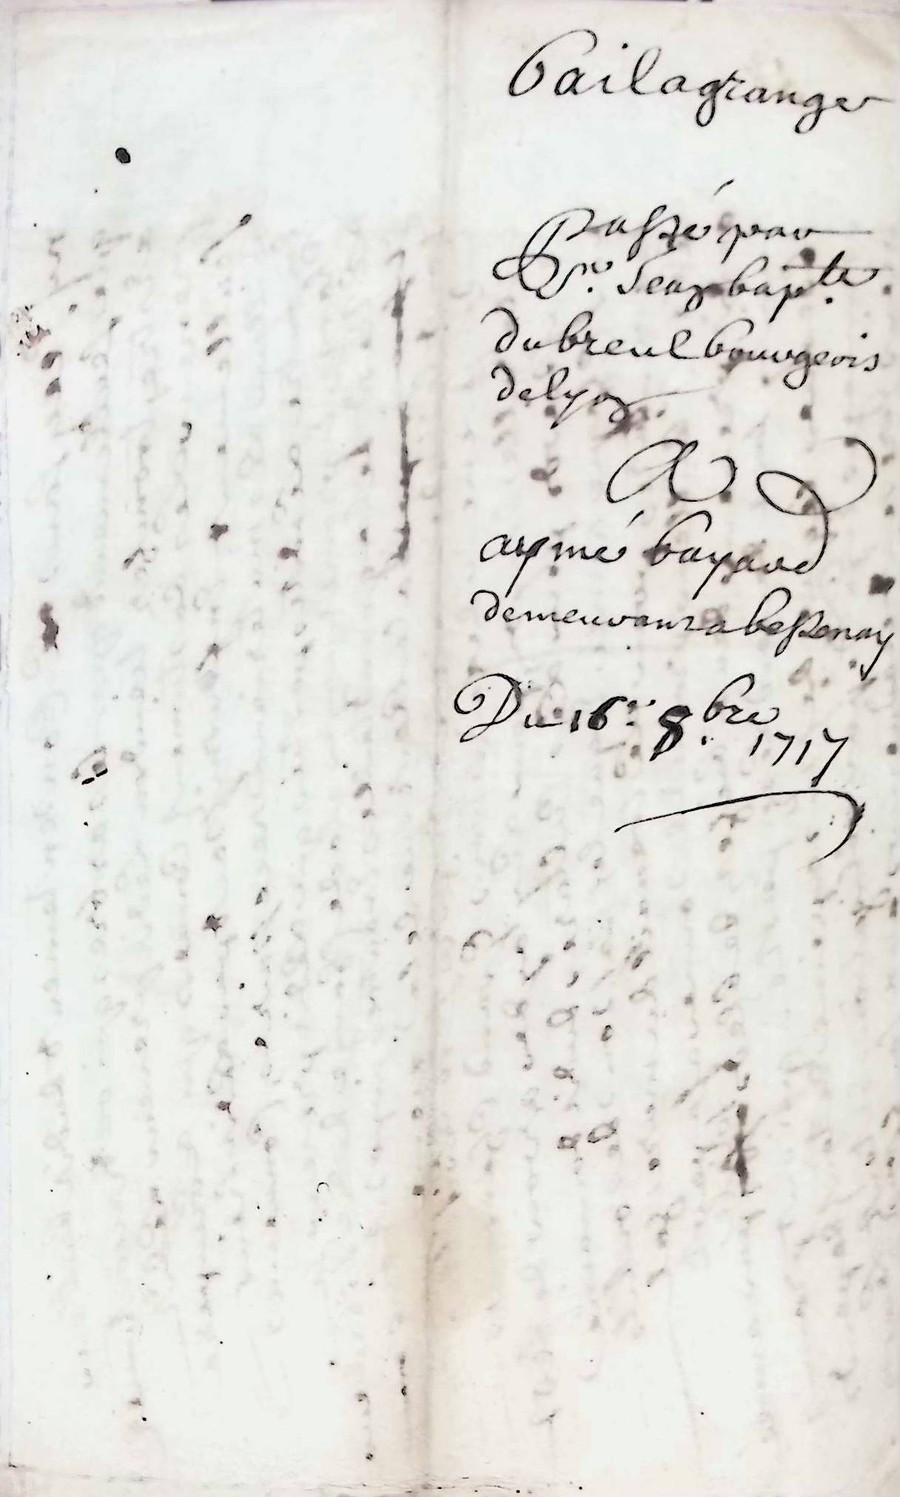 Bailagrange
Passé par
Sr. Jean bapte.
dubreul bourgeois
de lyon.
A
aymé bayard
demeurant a bessenay
Du 16e. 8.bre
1717